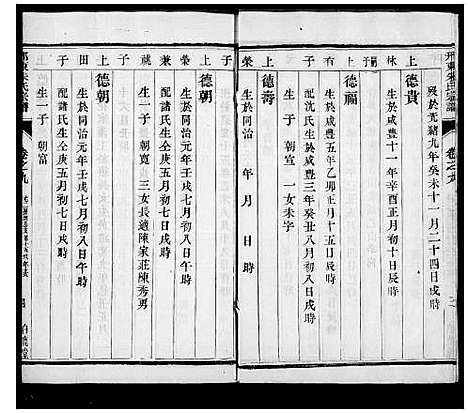 歿於光緒九年癸未十一月二十四日戌時
上 德貴
林 子
生於咸豐十一年辛酉正月初十日辰時
上 德福
有 子
生於咸豐五年乙卯正月十五日戌時
配沈氏生於咸豐三年癸丑八月初八日戌時
子 朝宣 一女未字
上 德壽
榮 子
生於同治 年 月 日 時
上 德朝
榮 子
生於同治元年壬戌七月初八日午時
兼
配諸氏生仝庚五月初七日戌時
祧
生一子 朝寬 三女長適陳家莊陳秀男
上 德朝
田 子
生於同治元年壬戌七月初八日午時
配諸氏生仝庚五月初七日戌時
生一子 朝富
卷之九